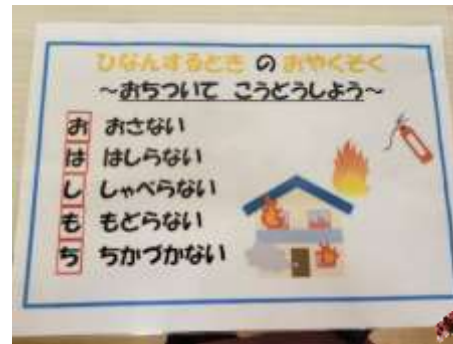 ひなんするとき の おやくそく
～おちついて こうどうしよう～
お おさない
は はしらない
し しゃべらない
も もどらない
ち ちかづかない